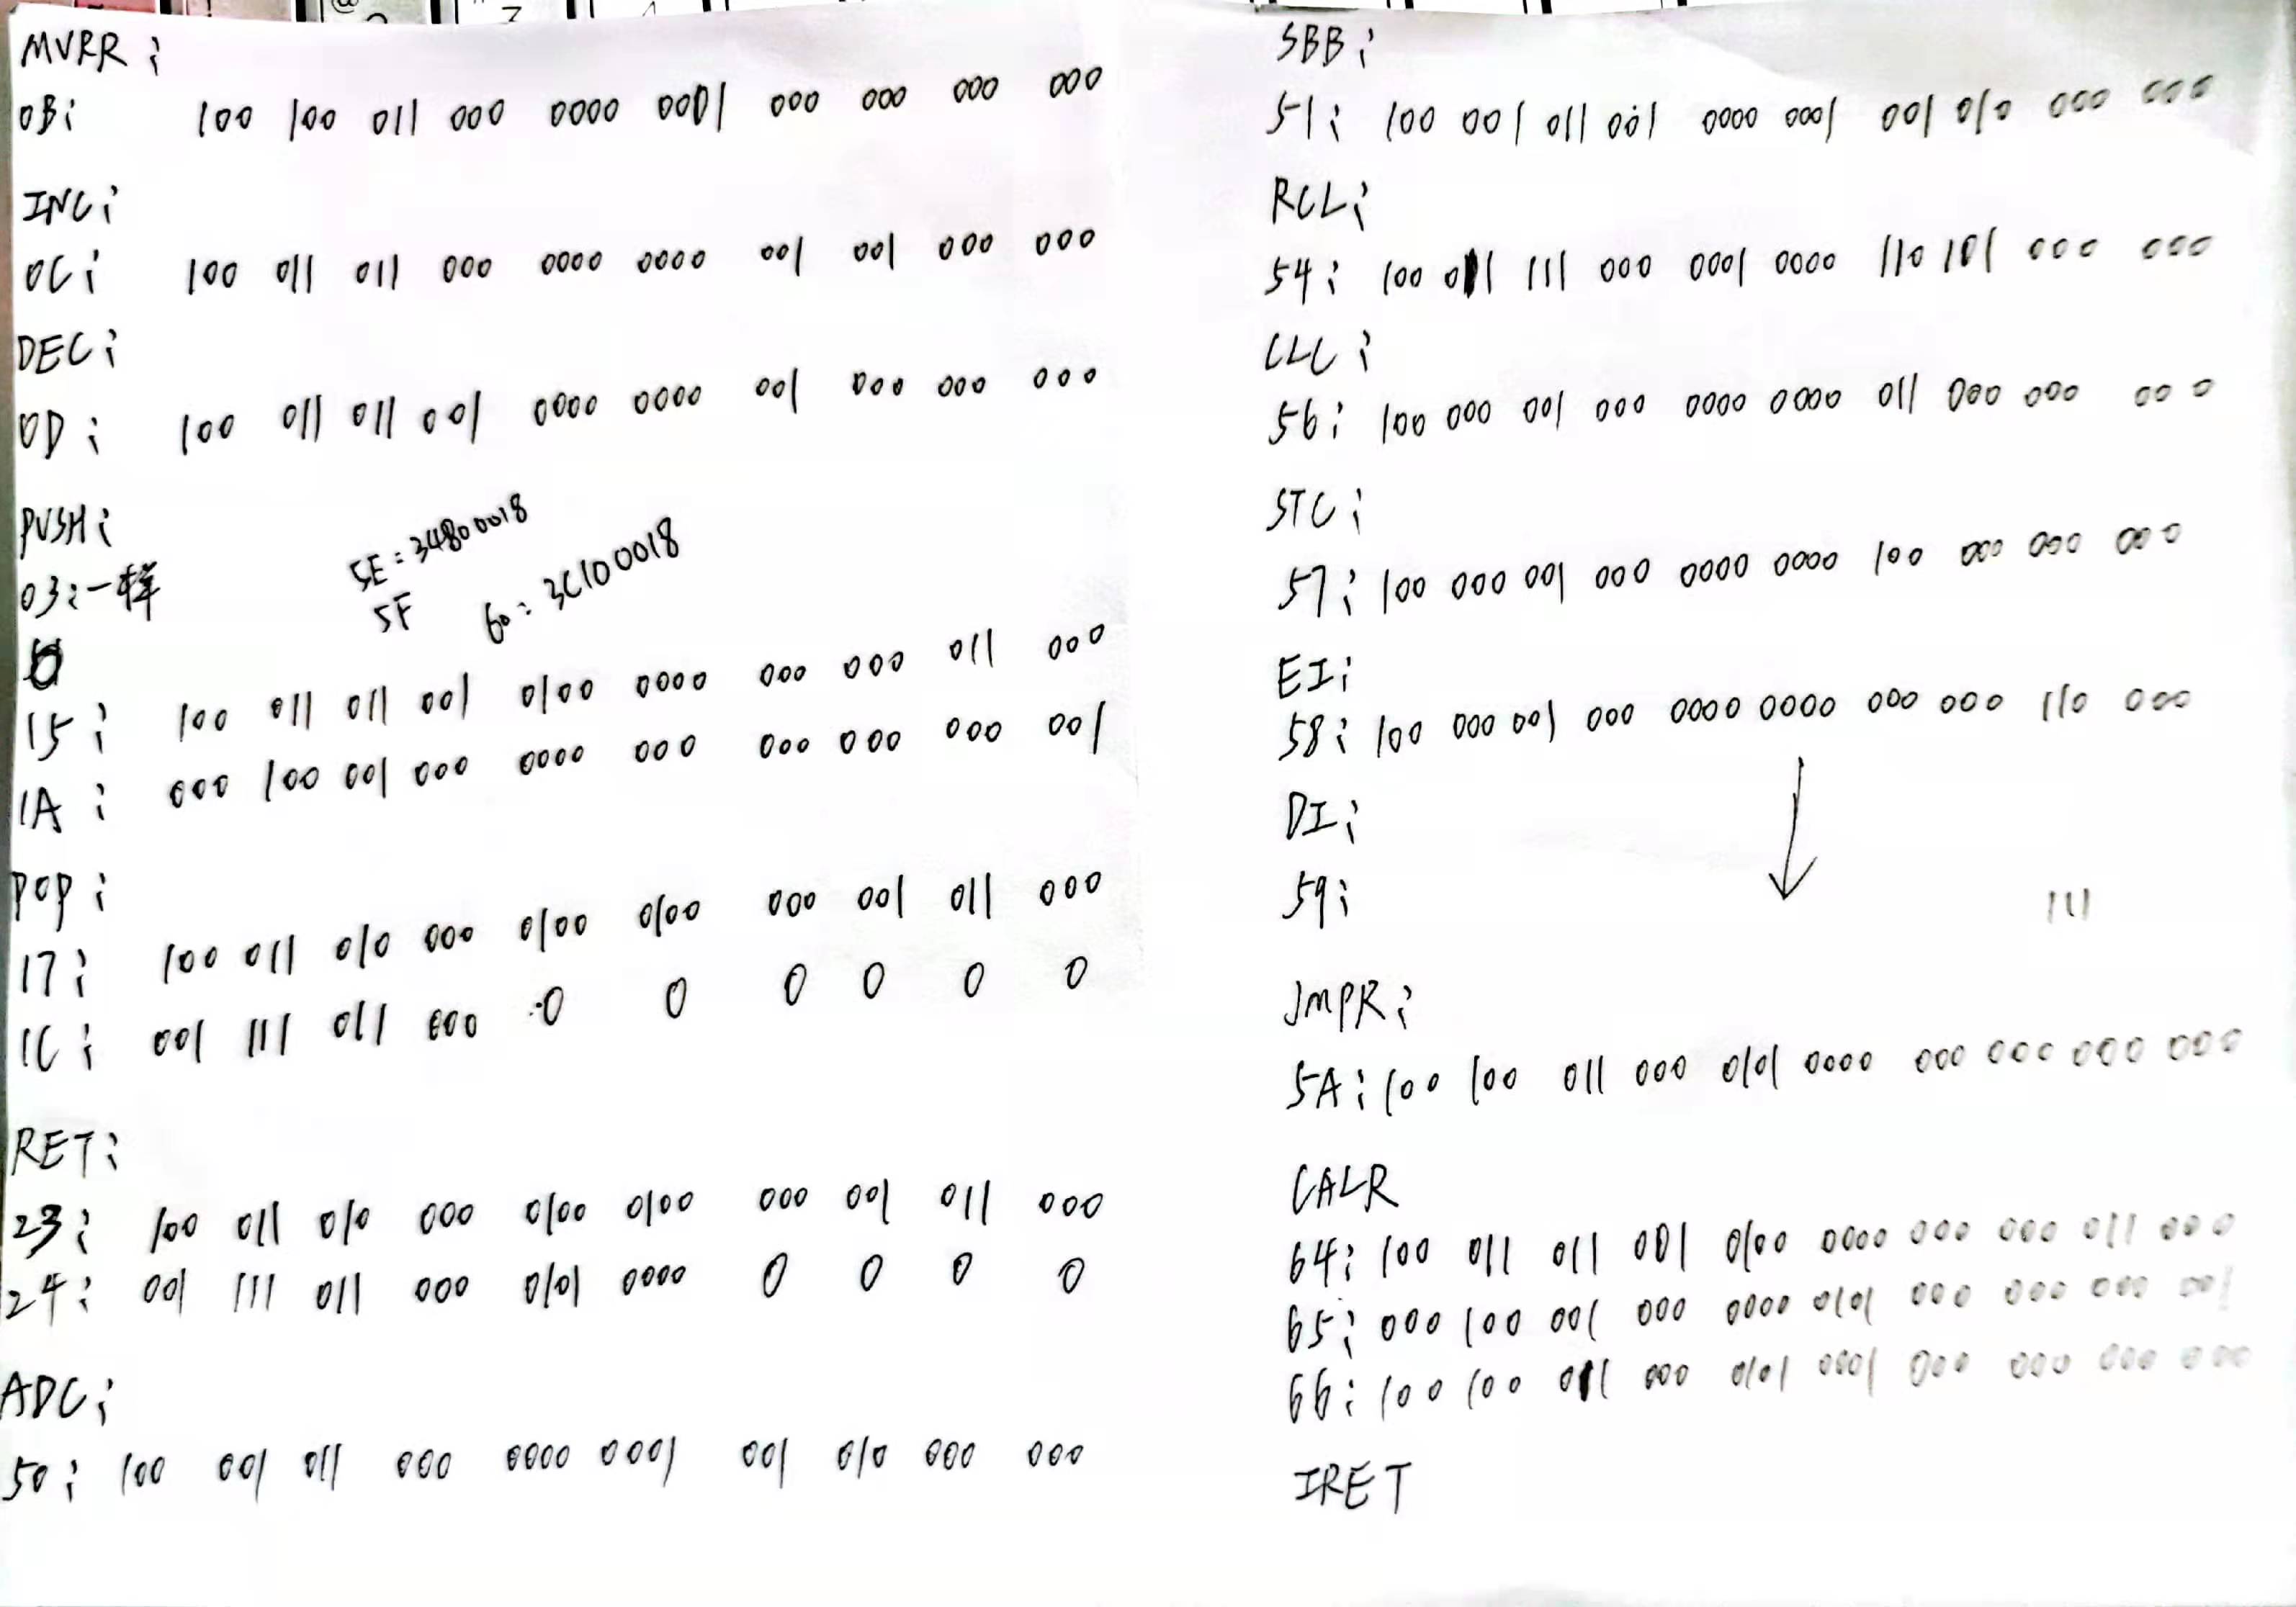 MVRR:
0B: 100 100 011 000 0000 0001 000 000 000 000
INC:
0C: 100 011 011 000 0000 0000 001 001 000 000
DEC:
0D: 100 011 011 001 0000 0000 001 000 000 000
PUSH:
03:一样
5E = 34800018
5F
60: 3C100018
15: 100 011 011 001 0100 0000 000 000 011 000
1A: 000 100 001 000 0000 000 000 000 000 001
POP:
17: 100 011 010 000 0100 0100 000 001 011 000
1C: 001 111 011 000 0 0 0 0 0 0
RET:
23: 100 011 010 000 0100 0100 000 001 011 000
24: 001 111 011 000 0101 0000 0 0 0 0
ADC:
50: 100 001 011 000 0000 0001 001 010 000 000
SBB:
51: 100 001 011 001 0000 0001 001 010 000 000
RCL:
54: 100 011 111 000 0001 0000 110 101 000 000
CLC:
56: 100 000 001 000 0000 0000 011 000 000 000
STC:
57: 100 000 001 000 0000 0000 100 000 000 000
EI:
58: 100 000 001 000 0000 0000 000 000 110 000
DI:
59: 111
JMPR:
5A: 100 100 011 000 0101 0000 000 000 000 000
CALR
64: 100 011 011 001 0100 0000 000 000 011 000
65: 000 100 001 000 0000 0101 000 000 000 001
66: 100 100 011 000 0101 0001 000 000 000 000
IRET